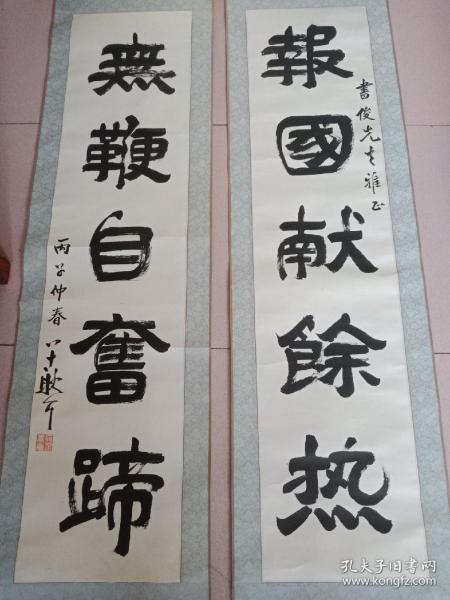 報國献餘热
書俊先生雅正
無鞭自奮蹄
丙子仲春
孔夫子旧书网
www.kongfz.com